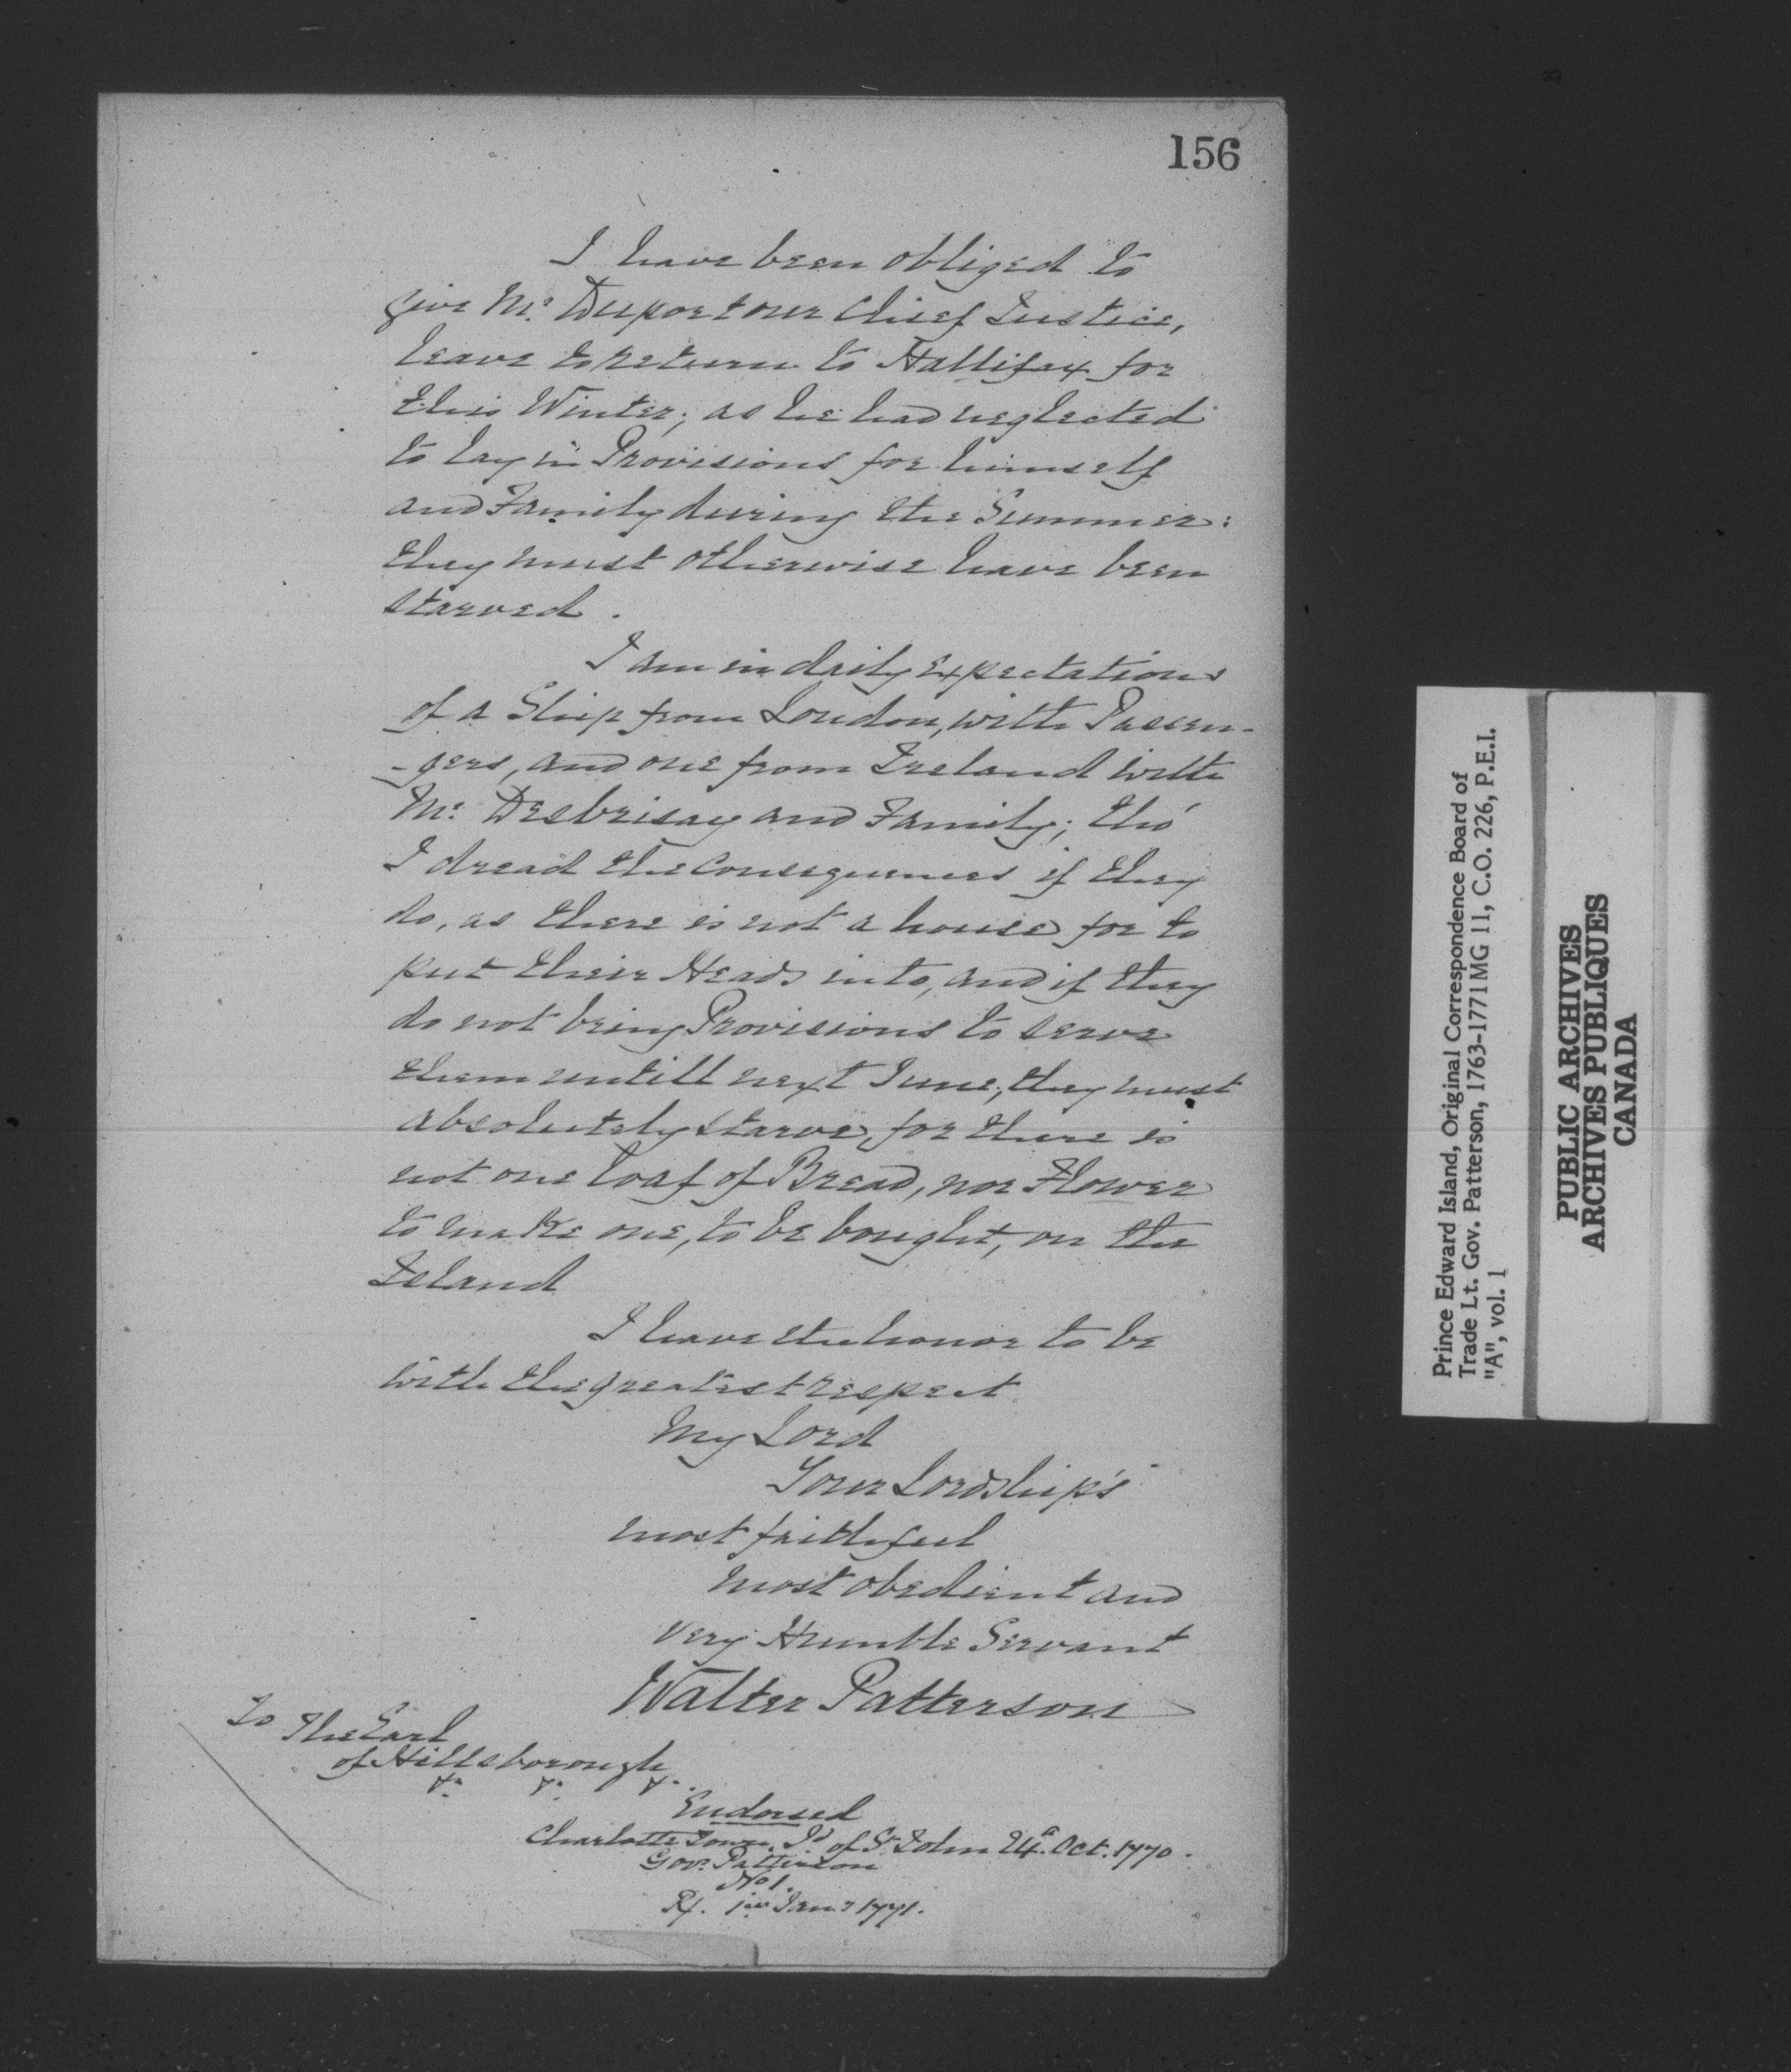 156
I have been obliged to
give Mr. Duport our Chief Justice,
leave to return to Hallifax for
this Winter; as he had neglected
to lay in Provisions for himself
and Family during the Summer:
they must otherwise have been
starved.
I am in daily expectations
of a Ship from London, with Passen-
-gers, and one from Ireland with
Mr. Desbrisay and Family; tho'
I dread the Consequences if they
do, as there is not a house for to
put their Heads into, and if they
do not bring Provisions to serve
them untill next June, they must
absolutely starve, for there is
not one loaf of Bread, nor Flower
to make one, to be bought, on the
Island
I have the honor to be
with the greatest respect
My Lord
Your Lordship's
most faithful
most obedient and
very Humble Servant
Walter Patterson
To The Earl
of Hillsborough
Endorsed
Charlotte Town, Id of St. John 24th. Oct. 1770.
Govr. Patterson
No 1.
Rx. Jany 1771.
Prince Edward Island, Original Correspondence Board of
Trade Lt. Gov. Patterson, 1763-1771 MG 11, C.O. 226, P.E.I.
"A", vol. 1
PUBLIC ARCHIVES
ARCHIVES PUBLIQUES
CANADA